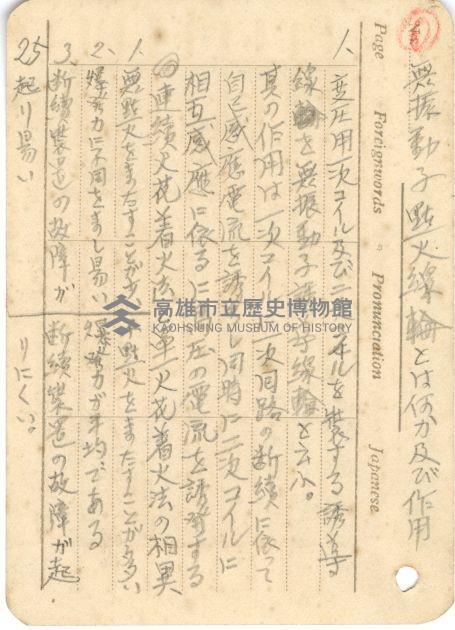 無振動子點火線輪とは何か及び作用
Page Foreignwords Pronunciation Japanese
1、変圧用一次コイル及び二次コイルを装する誘導
線輪を無振動子誘導線輪と云ふ。
其の作用は一次コイル一次回路の断続に依って
自己感應電流を誘し同時に二次コイルに
相互感應に依る圧の電流を誘発する
連續火花着火法 單火花着火法の相異
1、無點火をまたすことが少 點火をまたすことが多い
2、爆発力に不同をまし易い 爆発力が平均である
3、断續装置の故障が 断續装置の故障が起
起り易い りにくい。
25
高雄市立歷史博物館
KAOHSIUNG MUSEUM OF HISTORY